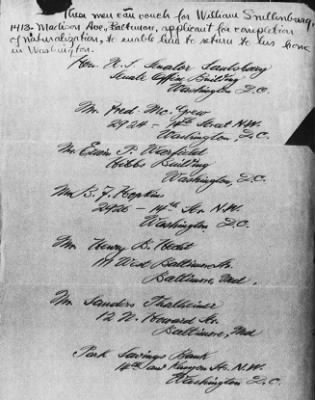 These men can vouch for William Snellenburg,
1413 - Madison Ave., Baltimore, applicant for completion
of naturalization, to enable him to return to his home
in Washington.
Hon. Senator Saulsbury
Senate Office Building
Washington D.C.
Mr. Fred Mc. Grew
2924 - Street N.W.
Washington, D.C.
Mr. Edwin P. Warfield
Hibbs Building
Washington, D.C.
Mr. B. F. Hopkins
2426 - 14th St. N.W.
Washington D.C.
Mr. Henry B. Hecht
West Baltimore St.
Baltimore Md.
Mr. Sanders Thalheimer
12 N. Howard St.
Baltimore, Md
Park Savings Bank
14th and Kenyon Sts. N.W.
Washington D.C.